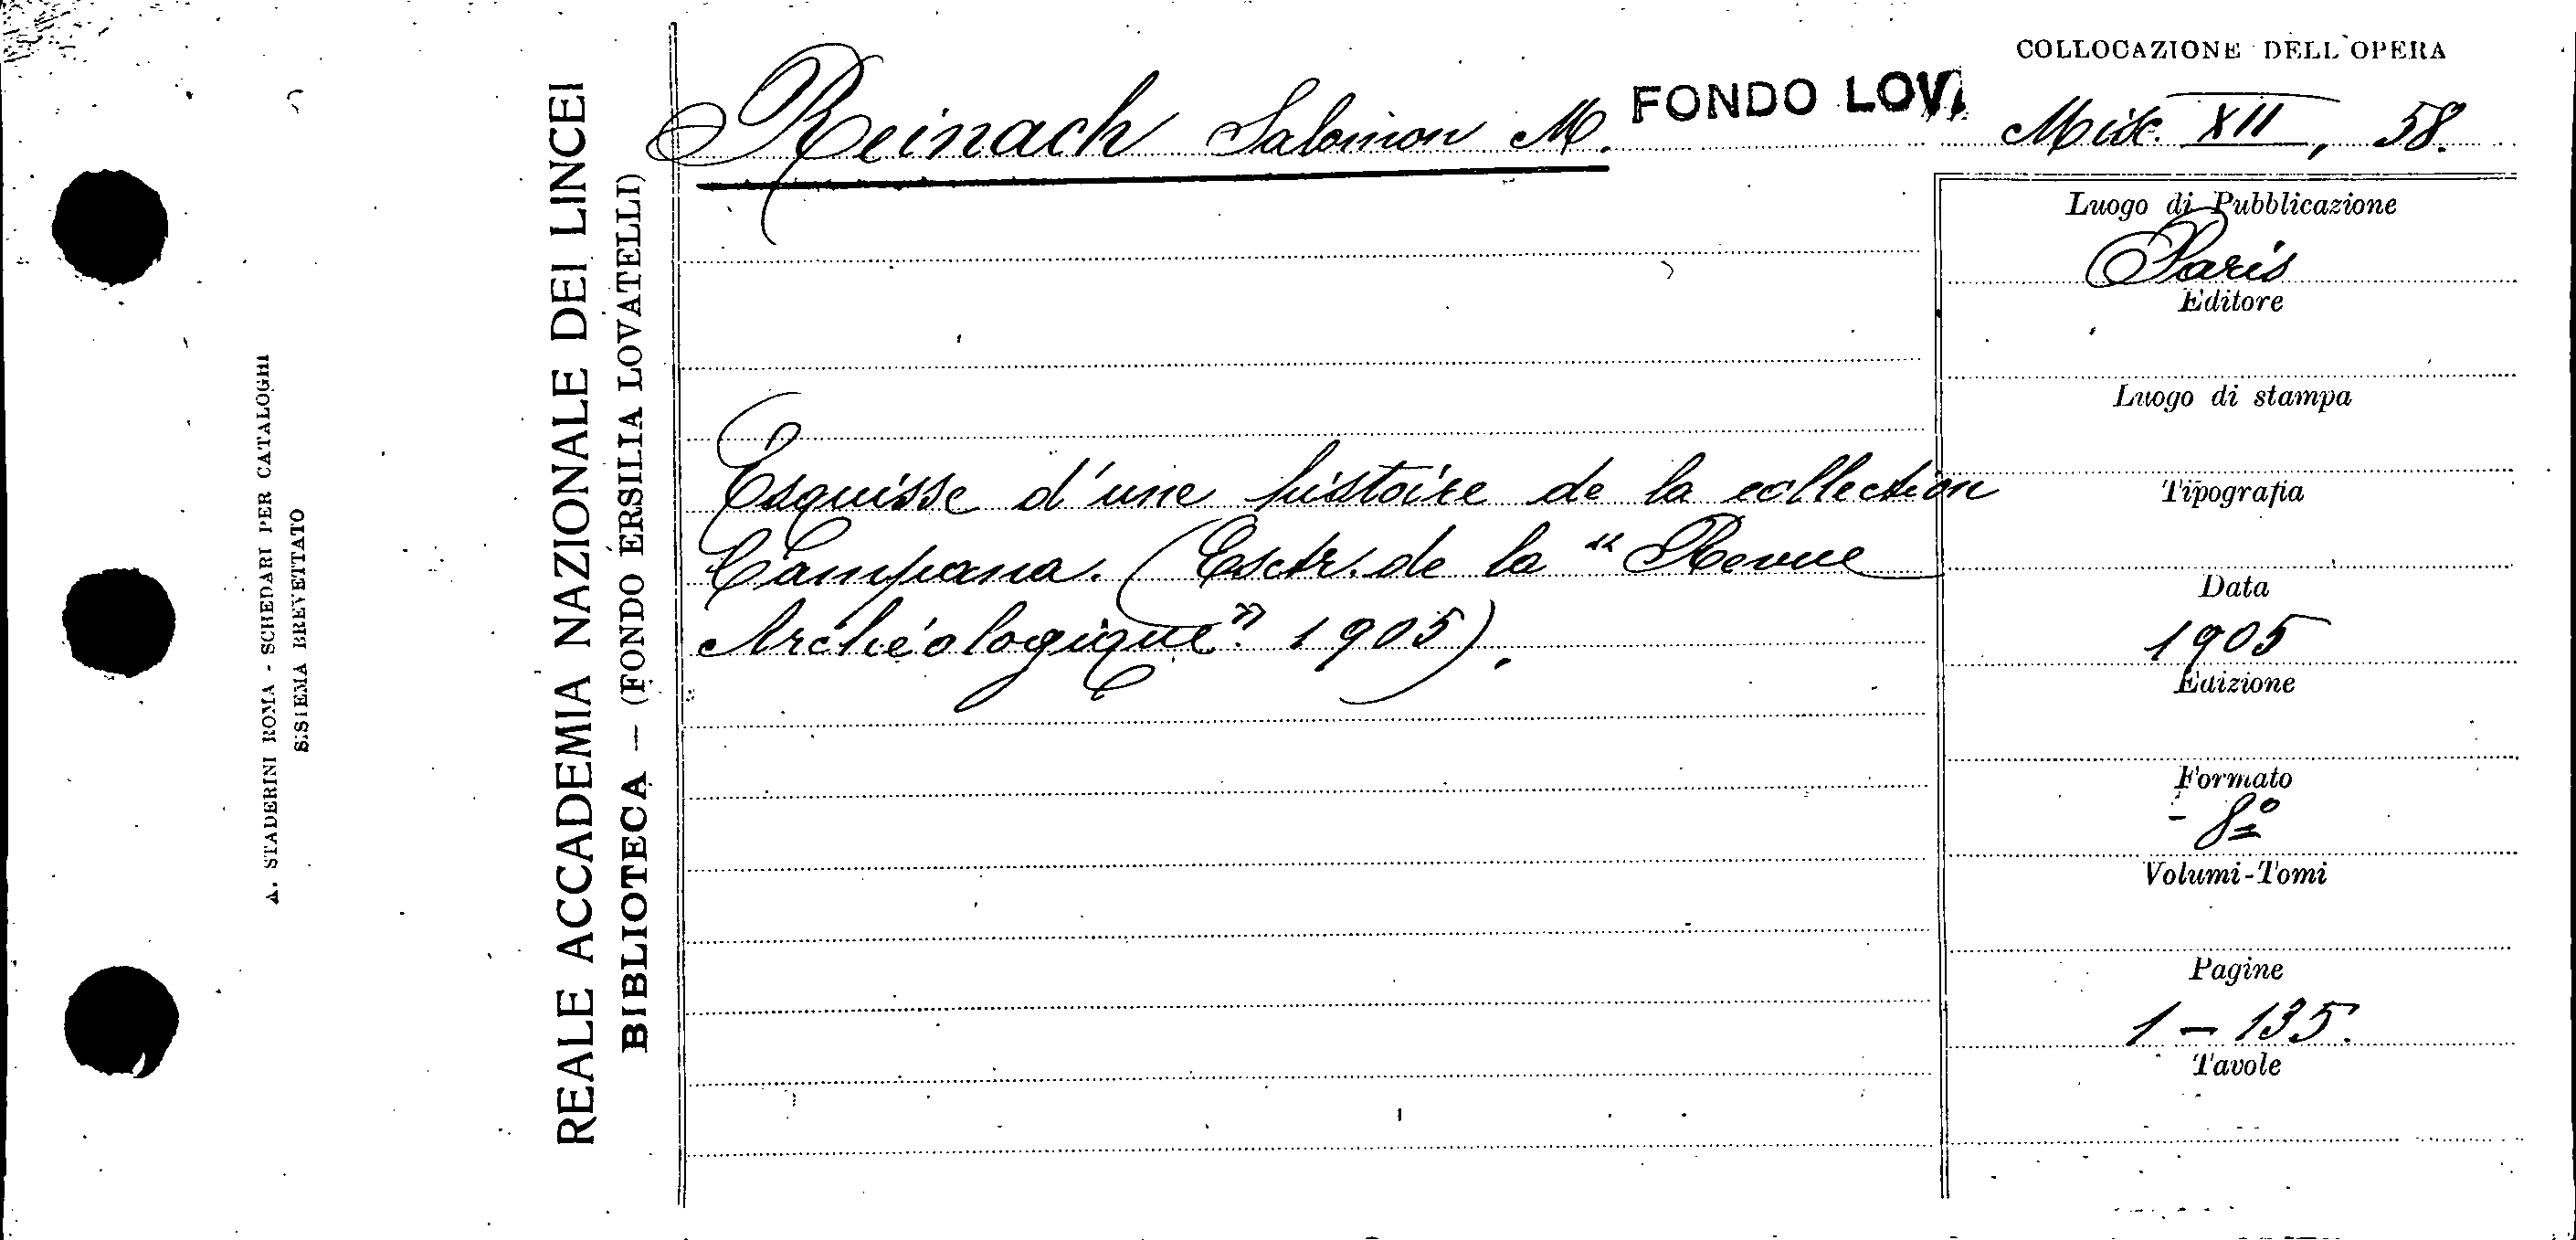 A. STADERINI ROMA - SCHEDARI PER CATALOGHI
SISTEMA BREVETTATO
REALE ACCADEMIA NAZIONALE DEI LINCEI
BIBLIOTECA — (FONDO ERSILIA LOVATELLI)
Reinach Salomon M.
FONDO LOV.
COLLOCAZIONE DELL'OPERA
Misc. XII, 58.
Esquisse d'une histoire de la collection
Campana. (Esctr. de la "Revue
Archéologique". 1905).
Luogo di Pubblicazione
Paris
Editore
Luogo di stampa
Tipografia
Data
1905
Edizione
Formato
- 8º
Volumi-Tomi
Pagine
1 - 135.
Tavole